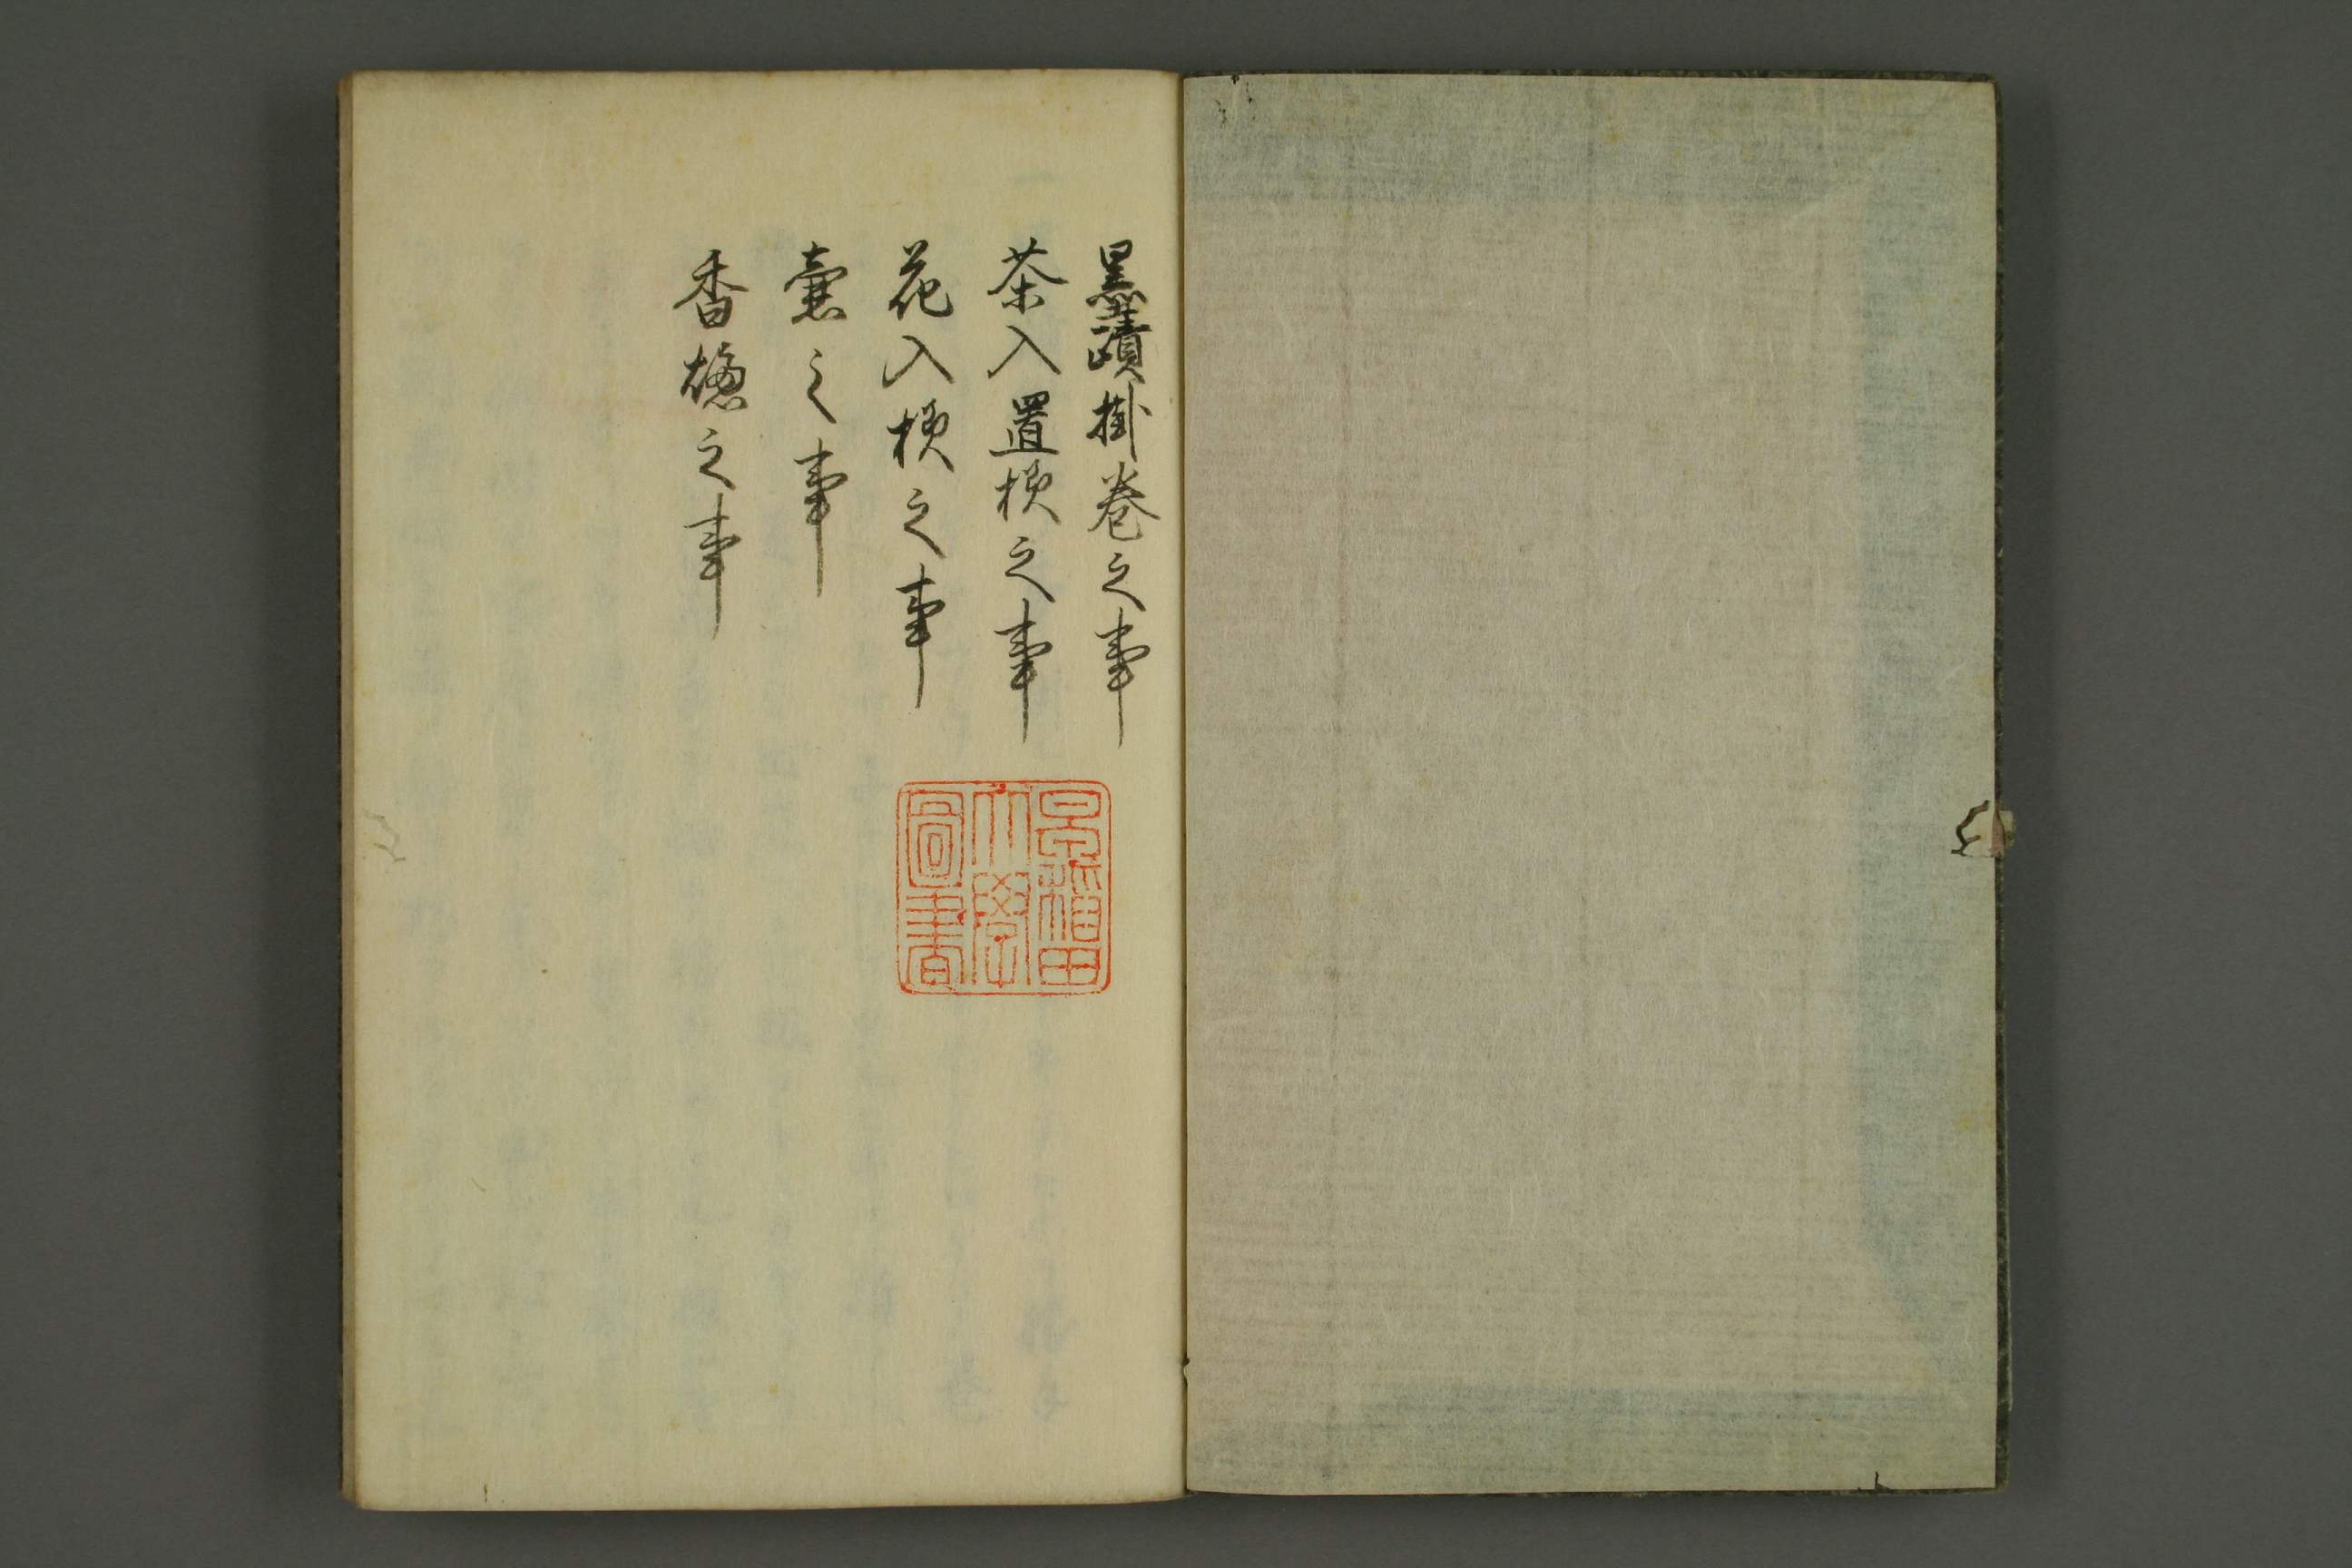 墨蹟掛巻之事
茶入置様之事
花入様之事
壷之事
香爐之事
早稲田
大學
圖書